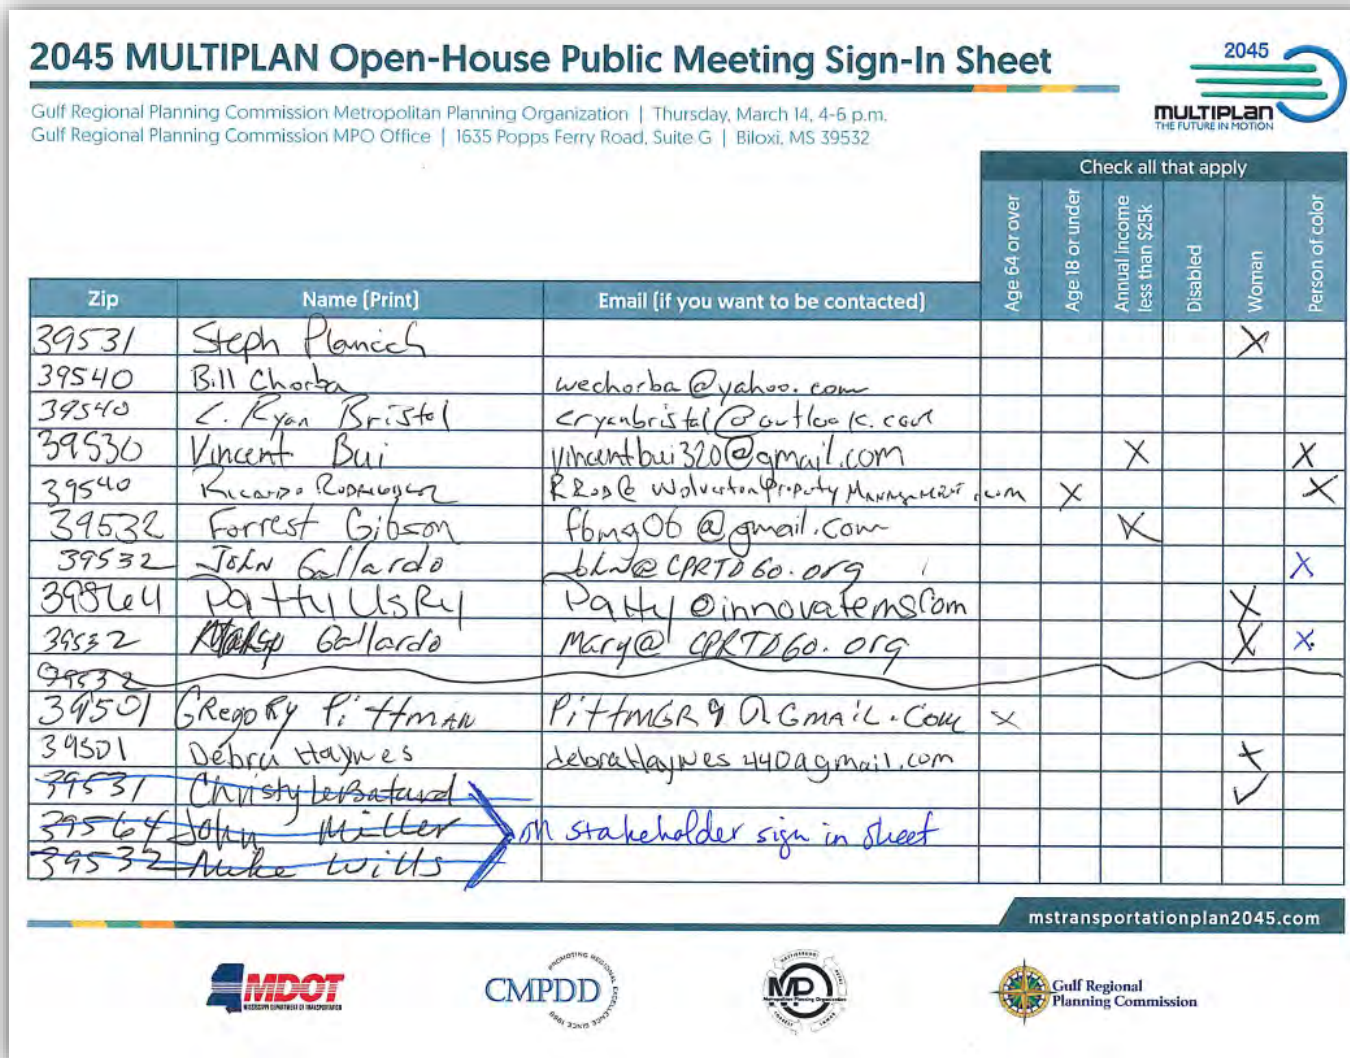 2045 MULTIPLAN Open-House Public Meeting Sign-In Sheet
2045
MULTIPLAN
THE FUTURE IN MOTION
Gulf Regional Planning Commission Metropolitan Planning Organization | Thursday, March 14, 4-6 p.m.
Gulf Regional Planning Commission MPO Office | 1635 Popps Ferry Road, Suite G | Biloxi, MS 39532
Check all that apply
Zip Name (Print) Email (if you want to be contacted) Age 64 or over Age 18 or under Annual income less than $25k Disabled Woman Person of color
39531 Steph Planich X
39540 Bill Chorba wechorba@yahoo.com
39540 C. Ryan Bristol cryanbristol@outlook.com
39530 Vincent Bui vincentbui320@gmail.com X X
39540 Ricardo Rodriguez RRod@WolvertonPropertyManagement.com X X
39532 Forrest Gibson fbmg06@gmail.com X
39532 John Gallardo John@CPRTDGO.org X
39564 Patty UsRy Patty@innovatems.com X
39532 Mary Gallardo Mary@CPRTDGO.org X X
39532
39501 GRegoRy PiTTmAN PiTTmGR9@GMAiL.Com X
39501 Debra Haynes debraHaynes440@gmail.com X
39531 Christy LeBatard ✓
39564 John Miller on stakeholder sign in sheet
39532 Mike Wills
mstransportationplan2045.com
MDOT
MISSISSIPPI DEPARTMENT OF TRANSPORTATION
CMPDD
PROMOTING REGIONAL EXCELLENCE SINCE 1968
MPO
Metropolitan Planning Organization
Gulf Regional
Planning Commission